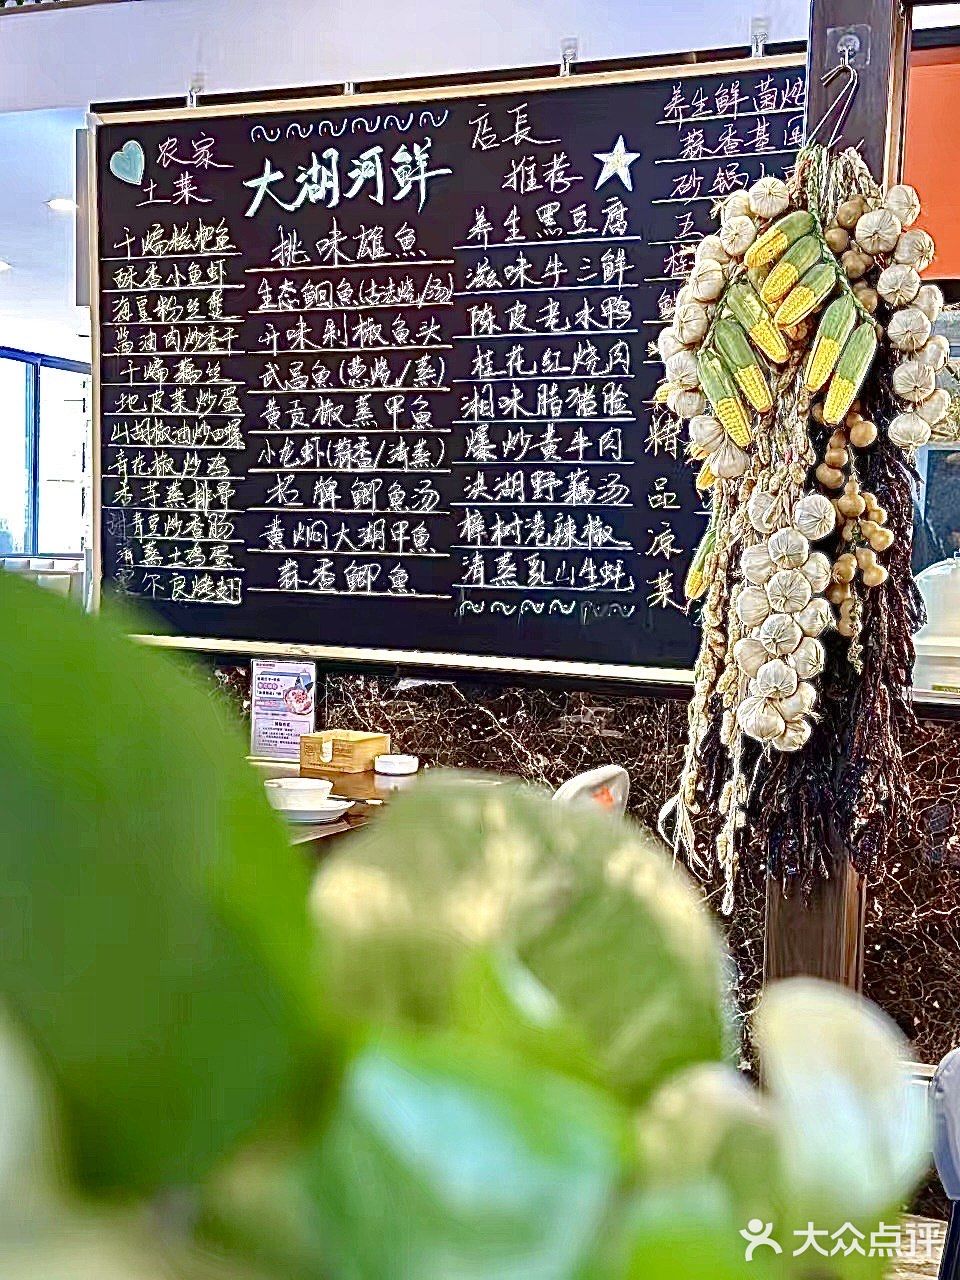 农家
土菜
干煸糍粑鱼
酥香小鱼虾
海豆粉丝煲
酱油肉炒香干
干煸藕丝
地皮菜炒蛋
山胡椒油炒田螺
青花椒炒鸡
香芋蒸排骨
青豆炒香肠
清蒸土鸡蛋
奥尔良烤翅
大湖河鲜
挑味雄魚
生态鮰魚(古法烧/汤)
开味剁椒魚头
武昌魚(葱烧/蒸)
黄贡椒蒸甲魚
小龙虾(蒜香/清蒸)
招牌鲫魚汤
黄焖大湖甲魚
蒜香鲫魚
店長
推荐
养生黑豆腐
滋味牛三鲜
陈皮老水鸭
桂花红烧肉
湘味腊猪脸
爆炒黄牛肉
洪湖野藕汤
樟树港辣椒
清蒸乳山生蚝
养生鲜菌炖
蒜香基围
砂锅小
五
精品凉菜
大众点评